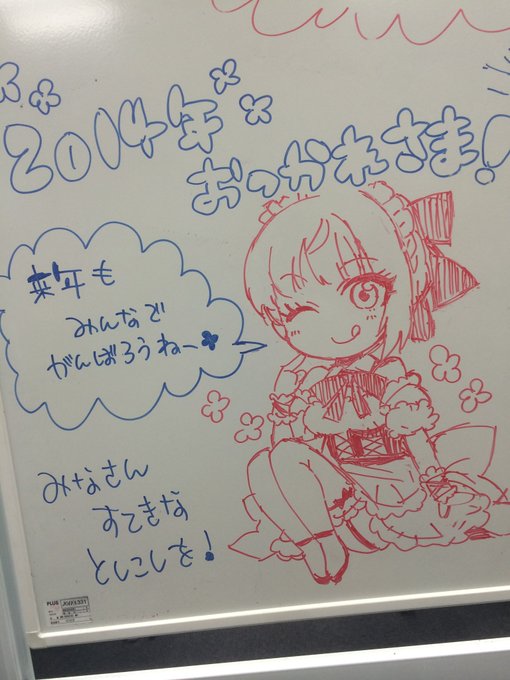 2014年
おつかれさま!
来年も
みんなで
がんばろうねー
みなさん
すてきな
としこしを!
PLUS